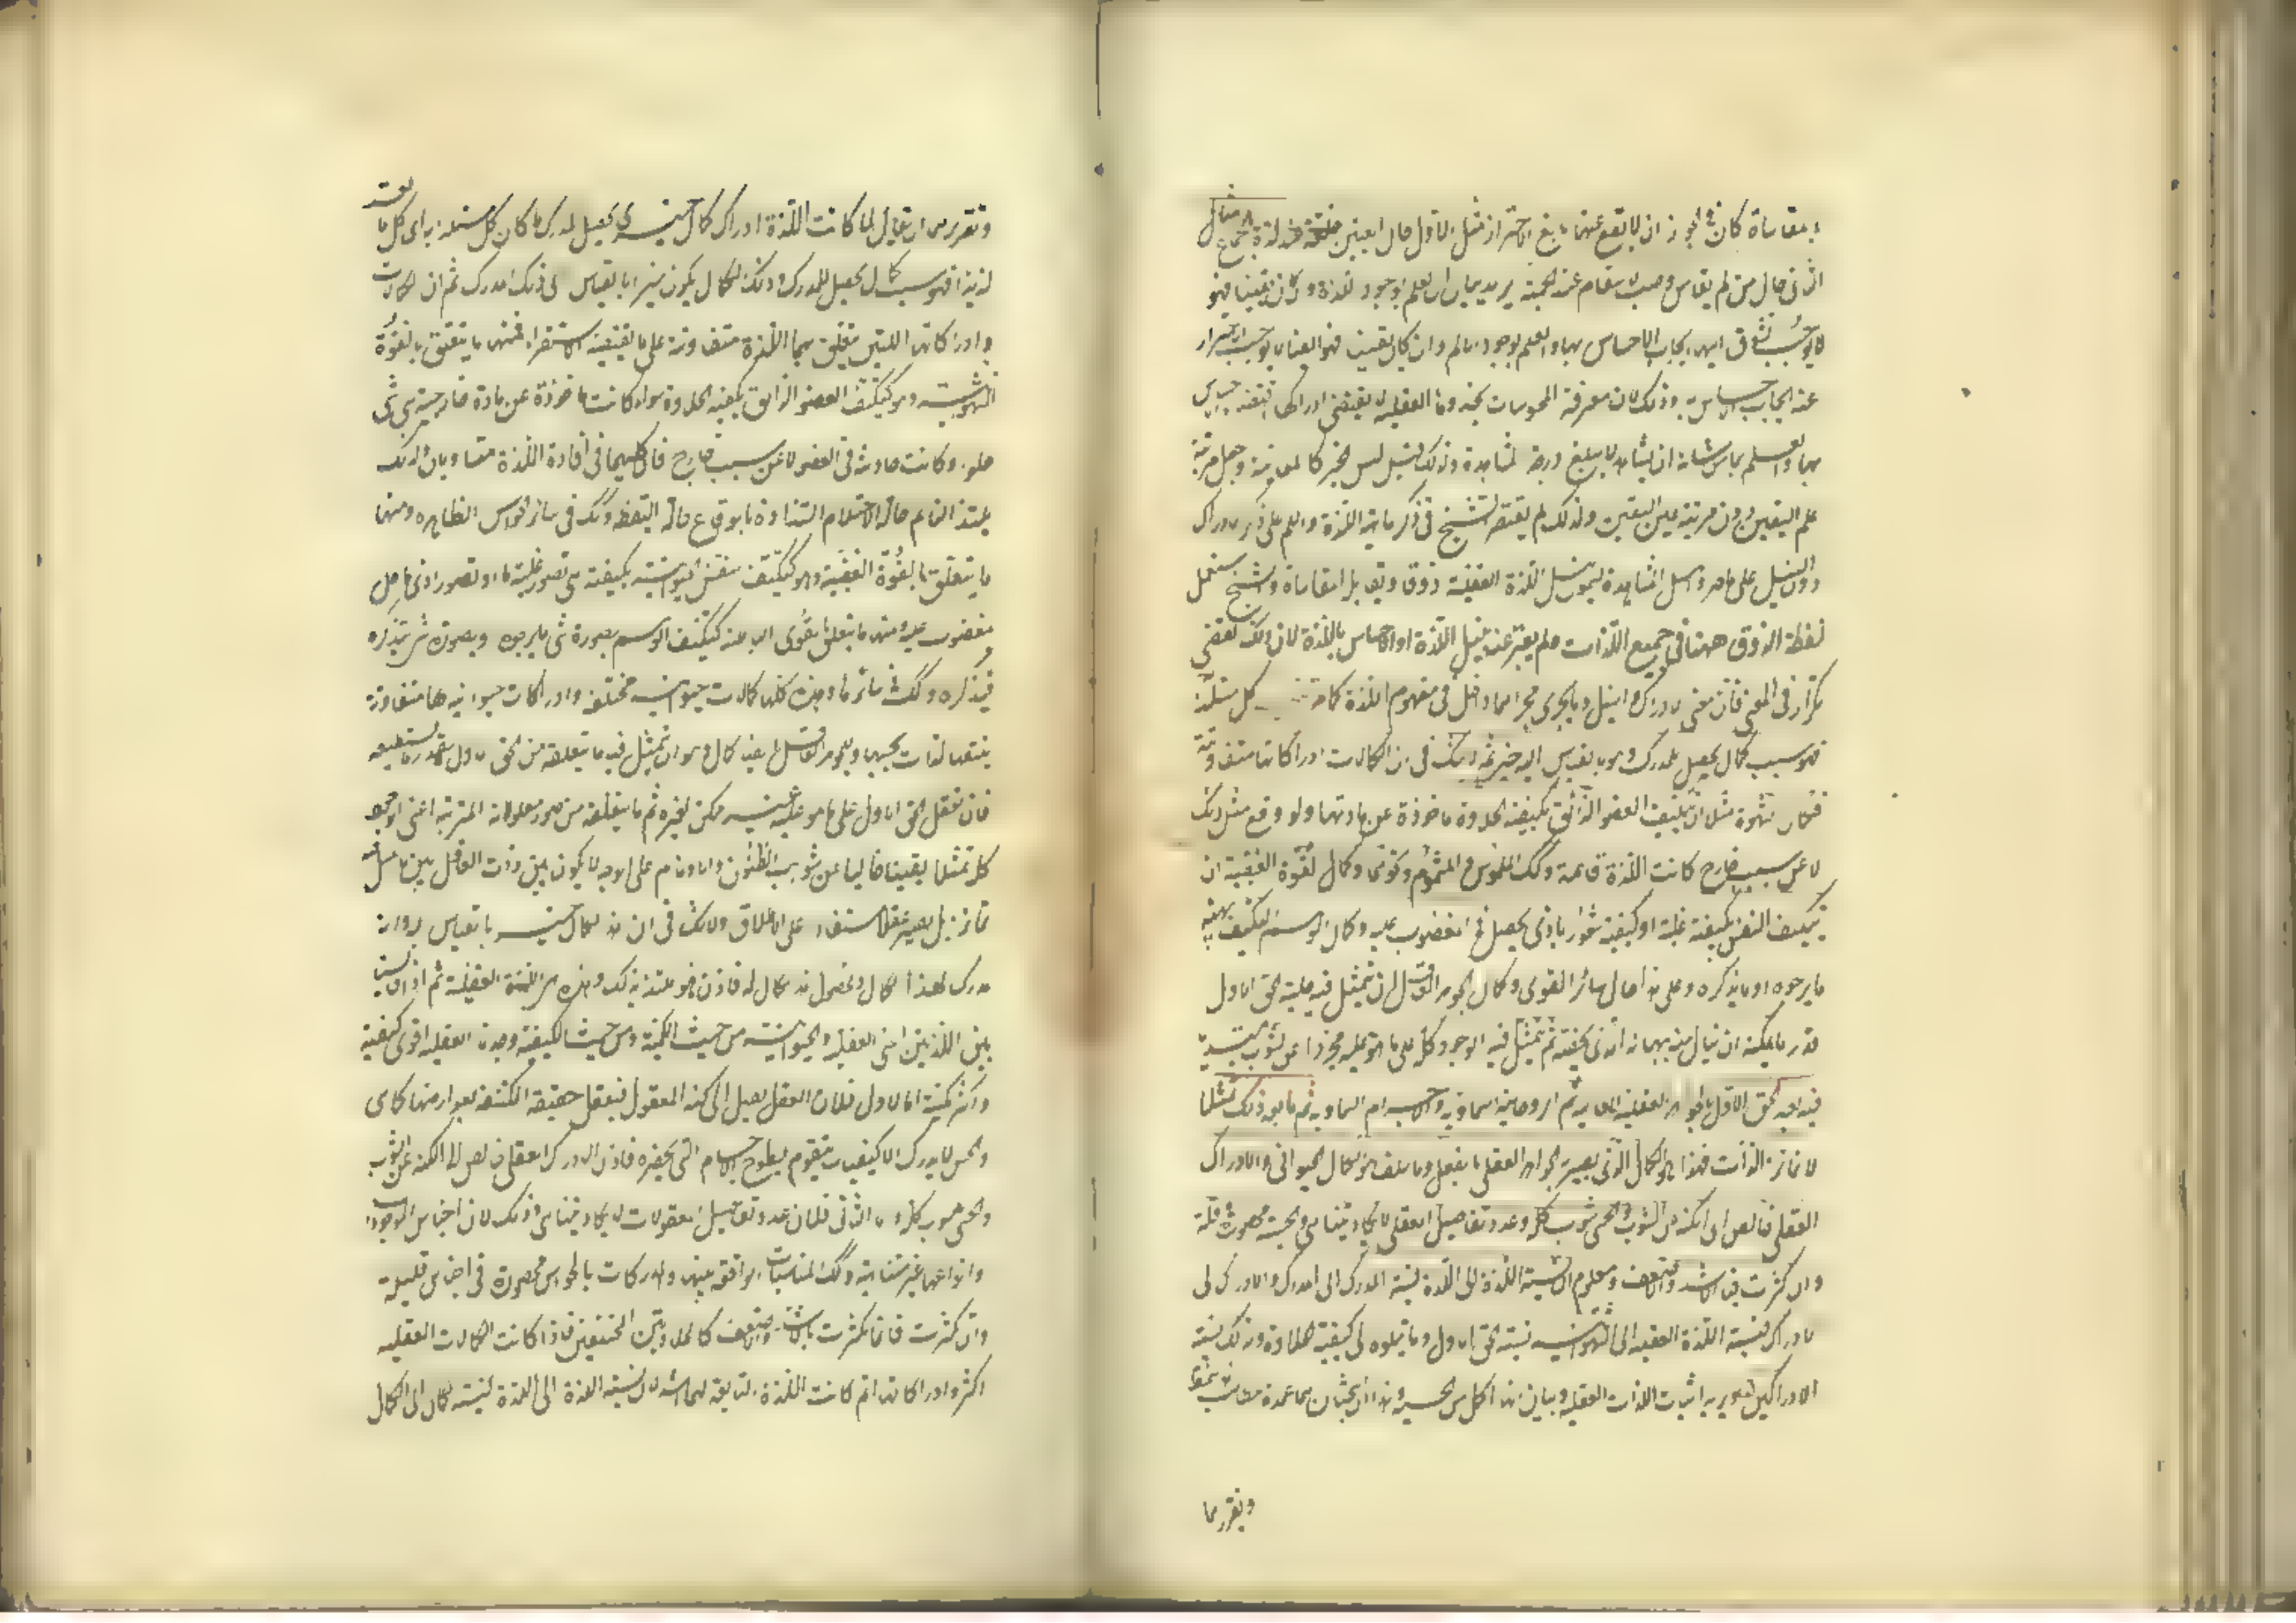 بمقاساة كان في الجواز ان لا يقع عنها بالغ الاحتراز مثل الاول حال العنين خلقة عند لذة الجماع مثال
الثاني حال من لم يقاس وصب الاسقام عند الحمية يريد بيان ان العلم بوجود اللذة وان كان يقينا فهو
لا يوجب الشوق اليها ايجاب الاحساس بها والعلم بوجود الالم وان كان يقينا فهو ايضا لا يوجب الاحتراز
عنه ايجاب الاحساس به وذلك لان معرفة المحسوسات بحدودها العقلية لا يقتضي ادراكها
بها والعلم بما من شانه ان يشاهد لا يبلغ درجة المشاهدة ولذلك قيل ليس الخبر كالمعاينة وجعل مرتبة
علم اليقين دون مرتبة عين اليقين ولذلك لم يقتصر الشيخ في ذكر ماهية اللذة والالم على ذكر الادراك
دون النيل على ما مر واهل المشاهدة يسمون نيل اللذة العقلية ذوقا ويقابل المقاساة والشيخ استعمل
لفظة الذوق ههنا في جميع اللذات ولم يعبر عنه بنيل اللذة او الاحساس باللذة لان ذلك يقتضي
تكرار في المعنى فان معنى الادراك والنيل وما يجري مجراهما داخل في مفهوم اللذة كما مر كل مستلذ
فهو سبب كمال يحصل للمدرك وهو بالقياس اليه خير ثم لا شك في ان الكمالات وادراكاتها متفاوتة
فكمال الشهوة مثلا ان يتكيف العضو الذائق بكيفية الحلاوة ماخوذة عن مادتها ولو وقع مثل ذلك
لا عن سبب خارج كانت اللذة قائمة وكذلك الملموس والمشموم ونحوهما وكمال القوة الغضبية ان
يتكيف النفس بكيفية غلبة او كيفية شعور باذى يحصل في المغضوب عليه وكمال الوهم التكيف بهيئة
ما يرجوه او ما يذكره وعلى هذا حال سائر القوى وكمال الجوهر العاقل ان يتمثل فيه جلية الحق الاول
قدر ما يمكنه ان ينال منه ببهائه الذي يخصه ثم يتمثل فيه الوجود كله على ما هو عليه مجردا عن الشوب مبتدءا
فيه بعد الحق الاول بالجواهر العقلية العالية ثم الروحانية السماوية والاجرام السماوية ثم ما بعد ذلك تمثلا
لا يمايز الذات فهذا هو الكمال الذي يصير به الجوهر العقلي بالفعل وما سلف هو الكمال الحيواني والادراك
العقلي خالص الى الكنه عن الشوب والحسي شوب كله وعدد تفاصيل العقلي لا يكاد يتناهى والحسية محصورة في قلة
وان كثرت فبالاشد والاضعف ومعلوم ان نسبة اللذة الى اللذة نسبة المدرك الى المدرك والادراك الى
الادراك فنسبة اللذة العقلية الى الشهوانية نسبة الحق الاول وما يتلوه الى كيفية الحلاوة وكذلك نسبة
الادراكين يريد اثبات اللذات العقلية وبيان انها اكمل من الحسية وهذان البحثان هما عمدة مطالب هذا النمط
وتقريرهما
وتقريرهما ان يقال لما كانت اللذة ادراك كمال خيري يحصل لمدرك ما كان كل مستلذ به اي كل ما يعد
لذيذا فهو سبب كمال يحصل للمدرك وذلك الكمال يكون خيرا بالقياس الى ذلك المدرك ثم ان الكمالات
وادراكاتها اللتين يتعلق بهما اللذة متفاوتة على ما يقتضيه الاستقراء فمنها ما يتعلق بالقوة
الشهوية وهو كتكيف العضو الذائق بكيفية الحلاوة سواء كانت ماخوذة عن مادة خارجية هي شيء
حلو او كانت حادثة في العضو لا عن سبب خارج فان كليهما في افادة اللذة متساويان ولذلك
يلتذ النائم حالة الاحتلام التذاذه بالوقاع حالة اليقظة وكذلك في سائر الحواس الظاهرة ومنها
ما يتعلق بالقوة الغضبية وهو كتكيف النفس الحيوانية بكيفية هي تصور غلبة ما او تصور اذى حاصل
لمغضوب عليه ومنها ما يتعلق بقوى الباطنة كتكيف الوهم بصورة شيء يرجوه وبصورة شيء يتذكره
فيذكره وكذلك في سائرها وهذه كلها كمالات حيوانية مختلفة وادراكات حيوانية لها متفاوتة
يتبعها لذات بحسبها وللجوهر العاقل ايضا كمال وهو ان يتمثل فيه ما يتعقله من الحق الاول بقدر ما يستطيعه
فان تعقل الحق الاول على ما هو عليه غير ممكن لغيره ثم ما يتعقله من صور معلولاته المترتبة اعني الوجود
كله تمثلا يقينا خاليا عن شوائب الظنون والاوهام على وجه لا يكون بين ذات العاقل وبين ما تمثل فيه
تمايز بل يصير عقلا مستفادا على الاطلاق ولا شك في ان هذا الكمال خير بالقياس اليه وانه
مدرك لهذا الكمال ولحصول هذا الكمال له فاذن هو ملتذ بذلك وهذه هي اللذة العقلية ثم اذا قايسنا
بين اللذتين اعني العقلية والحيوانية من حيث الكمية ومن حيث الكيفية وجدنا العقلية اقوى كيفية
واكثر كمية اما الاول فلان العقل يصل الى كنه المعقول فيعقل حقيقته المكتنفة بعوارضها كما هي
والحس لا يدرك الا كيفيات يتقوم بسطوح الاجسام التي يحضره فاذن الادراك العقلي خالص الى الكنه عن الشوب
والحسي شوب كله واما الثاني فلان عدد تفاصيل المعقولات لا يكاد يتناهى وذلك لان اجناس الموجودات
وانواعها غير متناهية وكذلك المناسبات الواقعة بينها والمدركات بالحواس محصورة في اجناس قليلة
وان كثرت فانما يكثر بالاشد والاضعف كالحلاوتين المختلفتين فاذا كانت الكمالات العقلية
اكثر وادراكاتها اتم كانت اللذة التابعة لهما اشد لان نسبة اللذة الى اللذة كنسبة الكمال الى الكمال